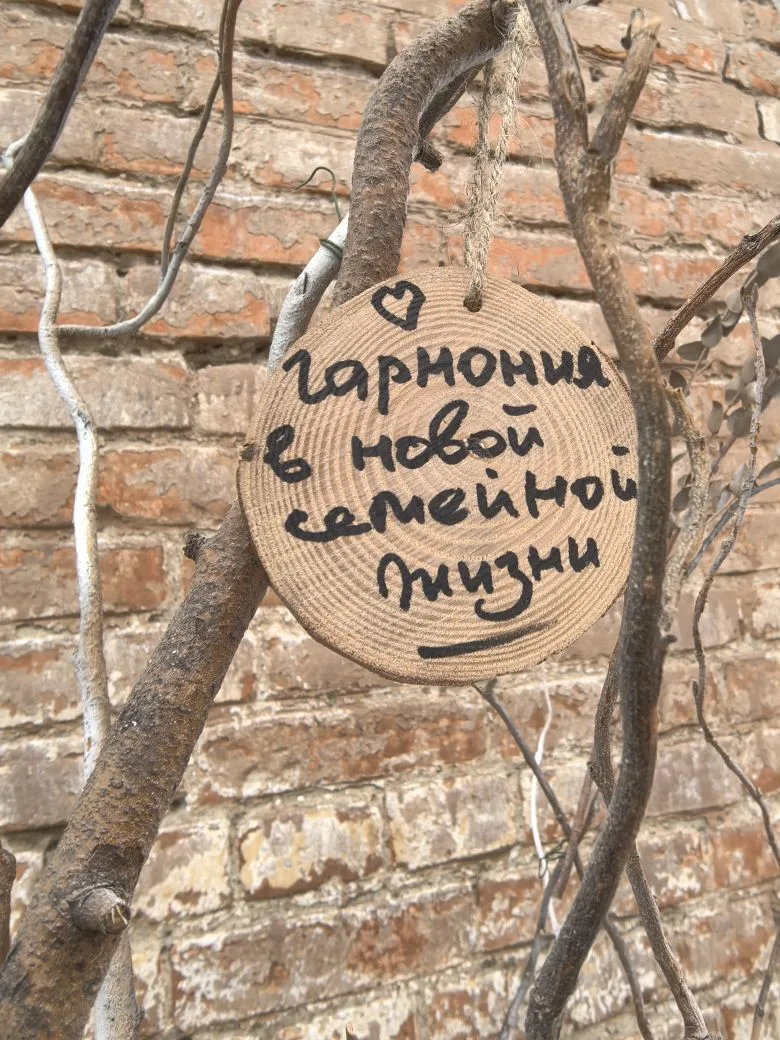 гармония
в новой
семейной
жизни